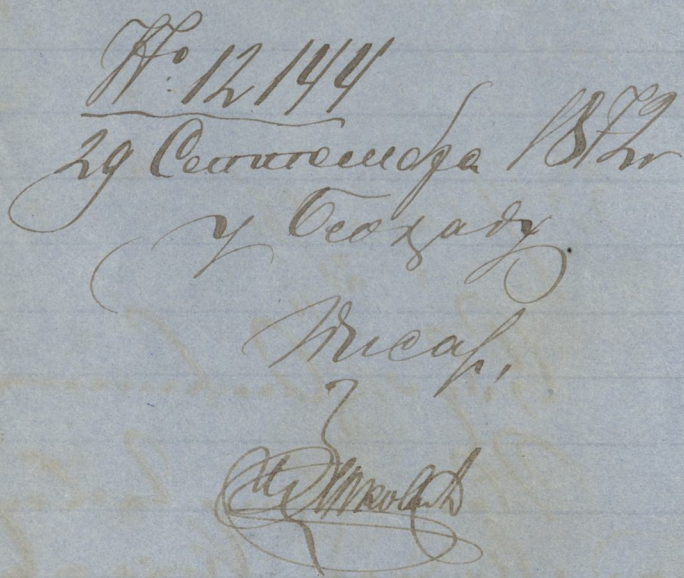 № 12144
29 Септембра 1872
у Београду
Писар,